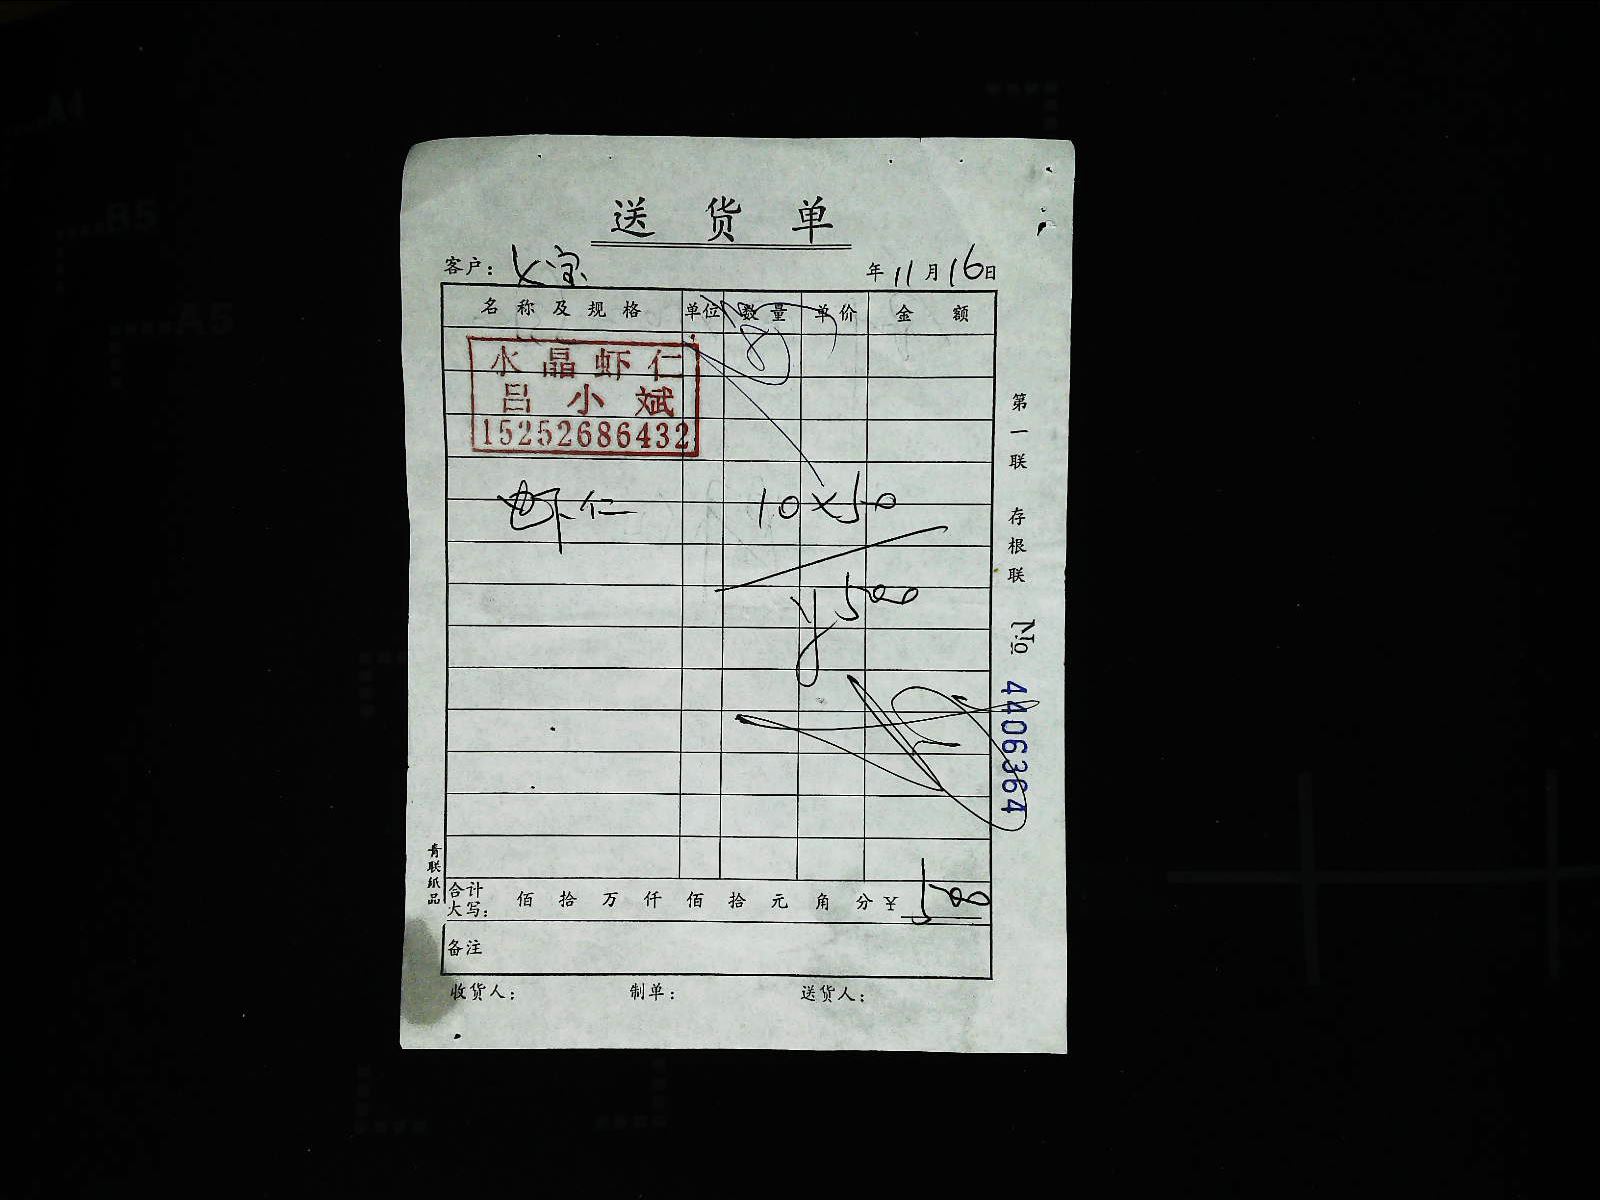 送货单
客户： 年11月16日
名称及规格 单位 数量 单价 金额
水晶虾仁
吕小斌
15252686432
虾仁 10×50
¥500
合计大写： 佰 拾 万 仟 佰 拾 元 角 分 ¥ 500
备注
收货人： 制单： 送货人：
第一联 存根联 № 4406364
青联纸品
A4
B5
A5